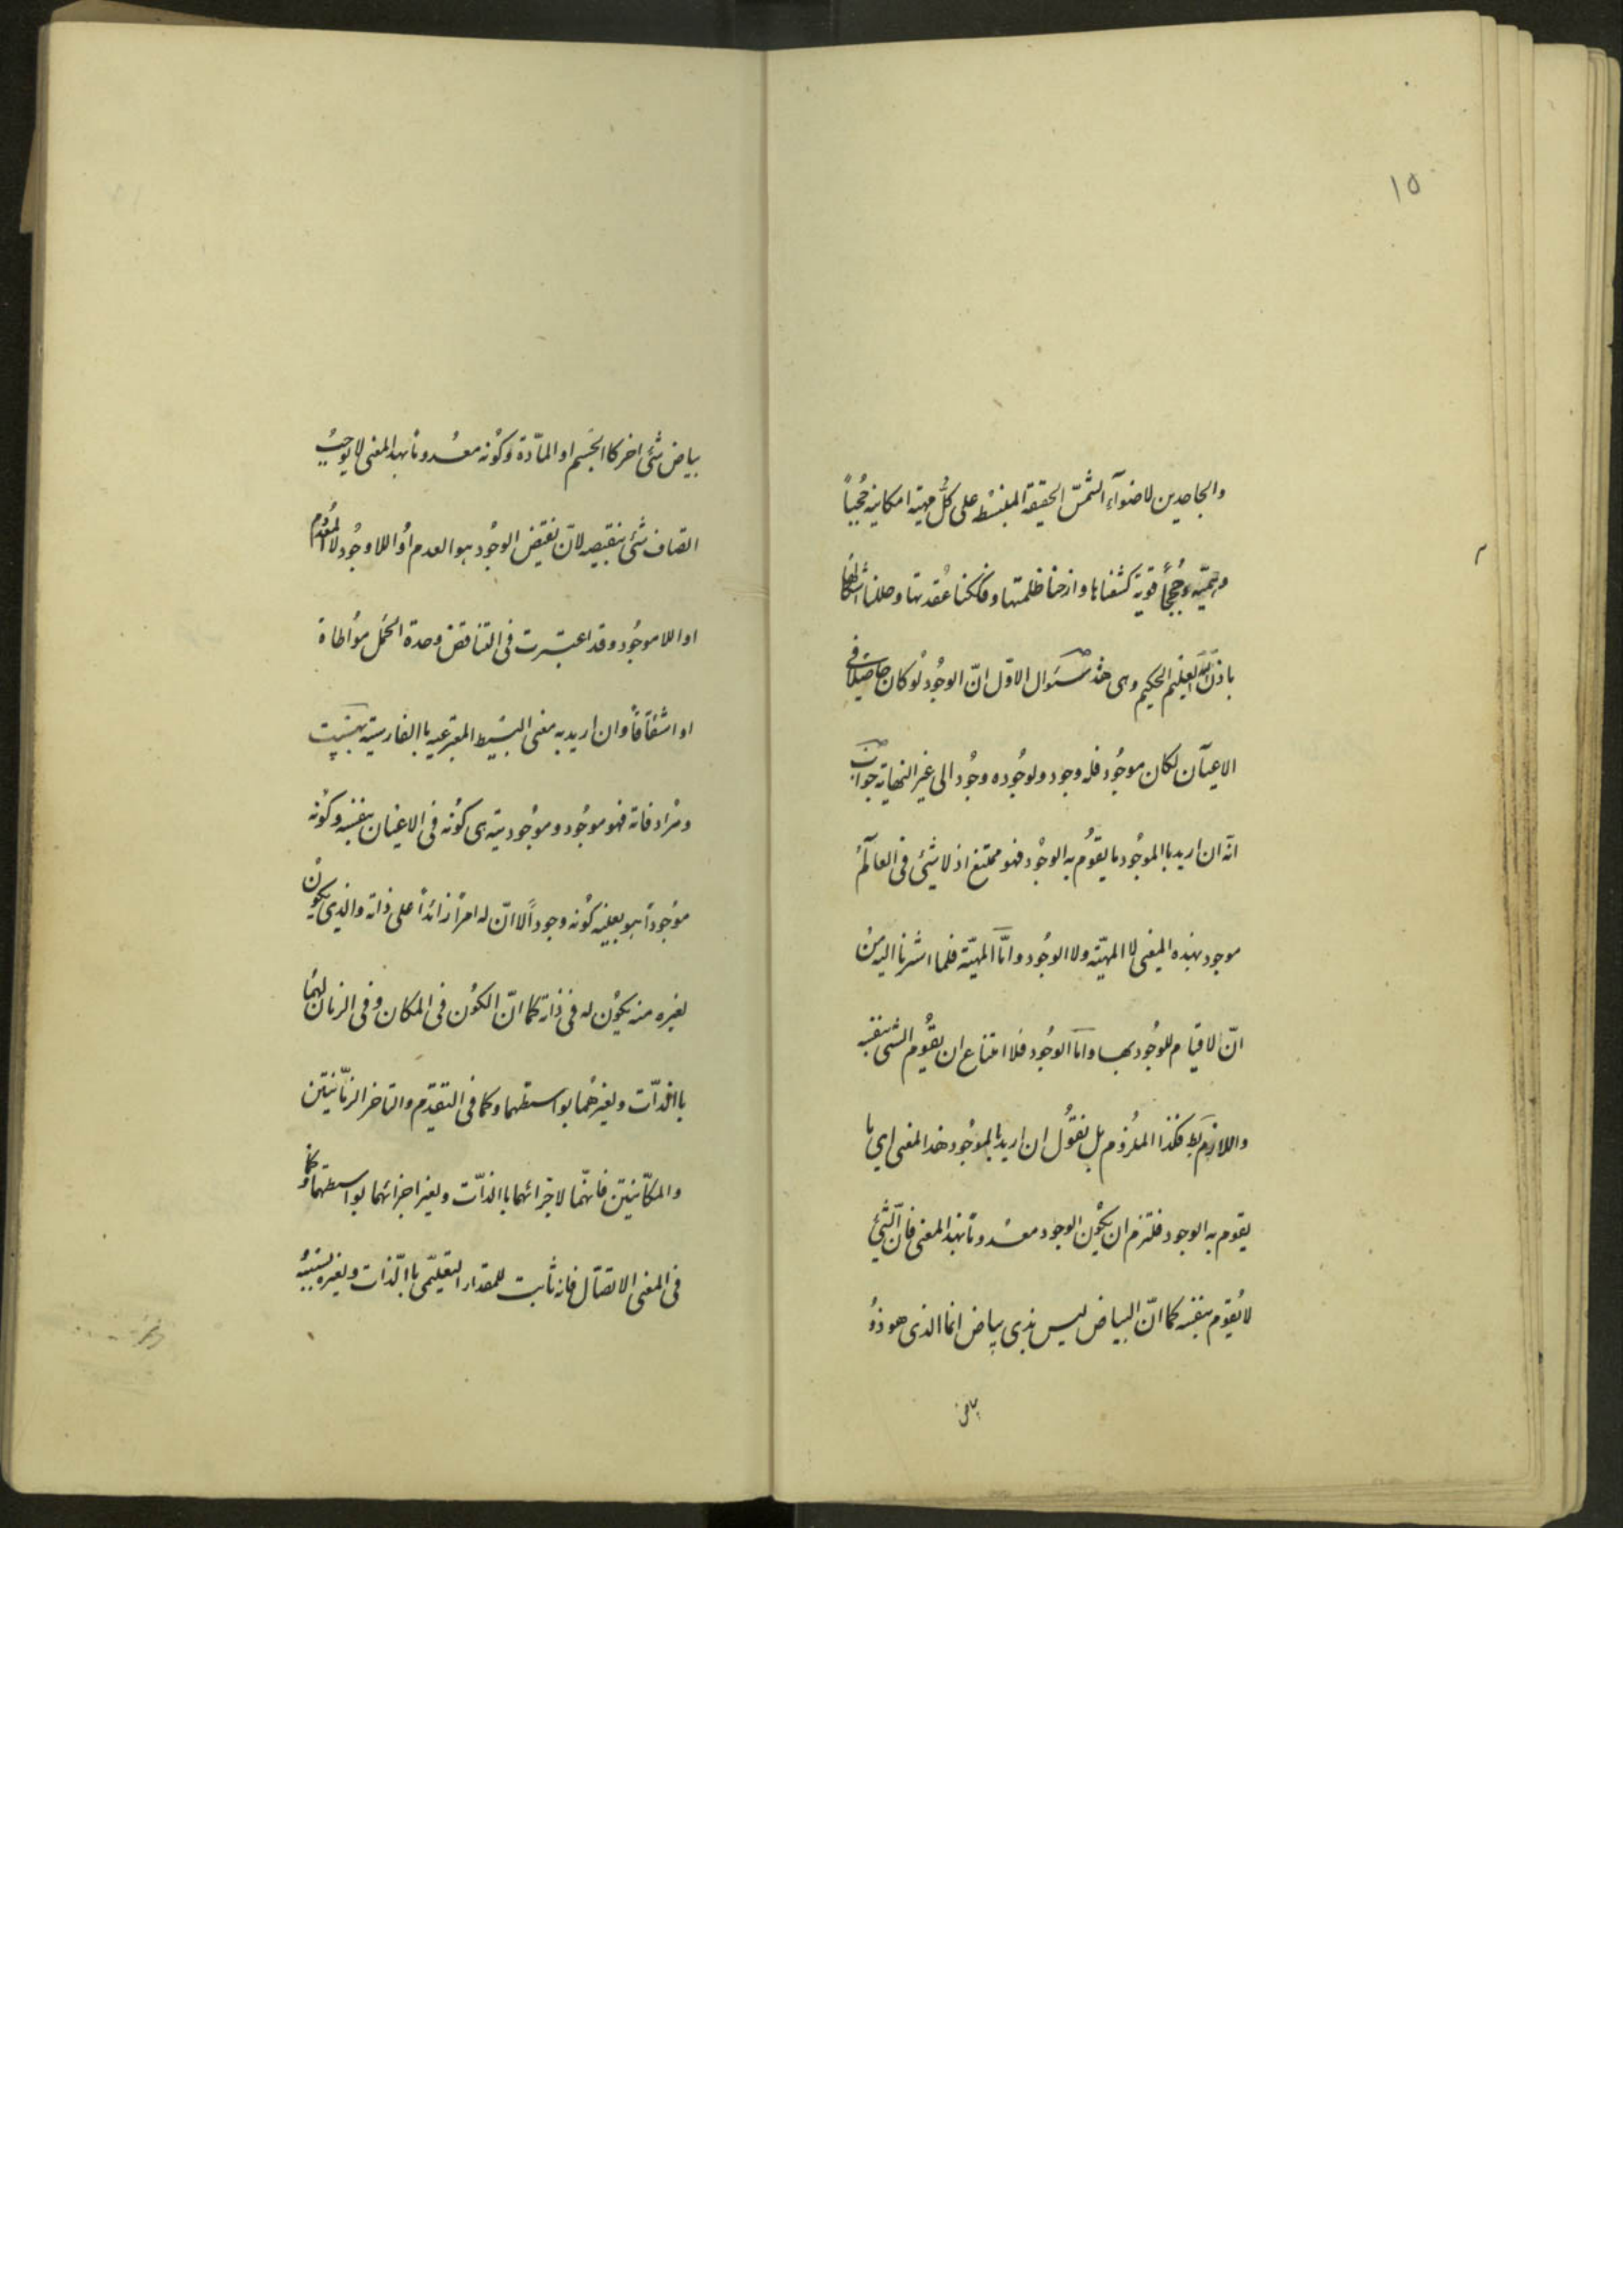 ١٥
والجاحدين لاضوآء الشمس الحقيقة المنبسط على كلّ مهية امكانية حُجُباً
وهميّه وحُججاً قوية كشفناها وازحنا ظلمتها وفككنا عُقدتها وحللنا اشكالها
باذن اللّه العليم الحكيم وهى هذه سئوال الاوّل انّ الوجُود لو كان حاصلا فى
الاعيآن لكان موجُود فله وجود ولوجُوده وجُود الى غير النهاية جواب
انّه ان اريد باالموجُود ما يقوُم به الوجُود فهو ممتنع اذ لا شيئ فى العآلم
موجود بهذه المعنى لا المهيّة ولا الوجُود وامّا المهيّة فلما اشرنا اليه من
انّ لا قيام للوجُود بها وامّا الوجُود فلا امتناع ان يقوُم الشى بنفسه
واللازم بط فكذا الملزوم بل نقوُل ان اريد بالموجُود هذا المعنى اى ما
يقوم به الوجود فلتزم ان يكوُن الوجود معدوماً بهذا المعنى فانّ الشئ
لا يُقوم بنفسه كما انّ البياض ليس بذى بياض انما الذى هو ذوُ
بياض
بياض شئى اخر كاالجسم او المآدّة وكوُنه معدوماً بهذا المعنى لا يوجبُ
اتصاف شئ بنقيضه لانّ نقيض الوجُود هو العدم اوُ اللاوجُود لا المعُدوُم
او اللا موجُود وقد اعتبرت فى التناقض وحدة الحمل موُاطاة
او اشتقاقاً وان اريد به معنى البسيط المعبّر عنه باالفارسية بهست
ومرُادفاته فهو موجُود وموجُوديته هى كوُنه فى الاعيان بنفسه وكوُنه
موُجوداً هو بعينه كوُنه وجوداً لا انّ له امراً زائداً على ذاته والذى يكوُن
لغيره منه يكوُن له فى ذاته كما انّ الكوُن فى المكان وفى الزمان لهما
باالذّات ولغيرهُما بواسطتهما وكما فى التقدّم والتاخر الزمّانيّتين
والمكانيّتين فانهّما لاجزائهما باالذّات ولغير اجزائهما بواسطتهما وكما
فى المعنى الاتصّال فانه ثابت للمقدار التعليّمى باالذّات ولغيره بسببه